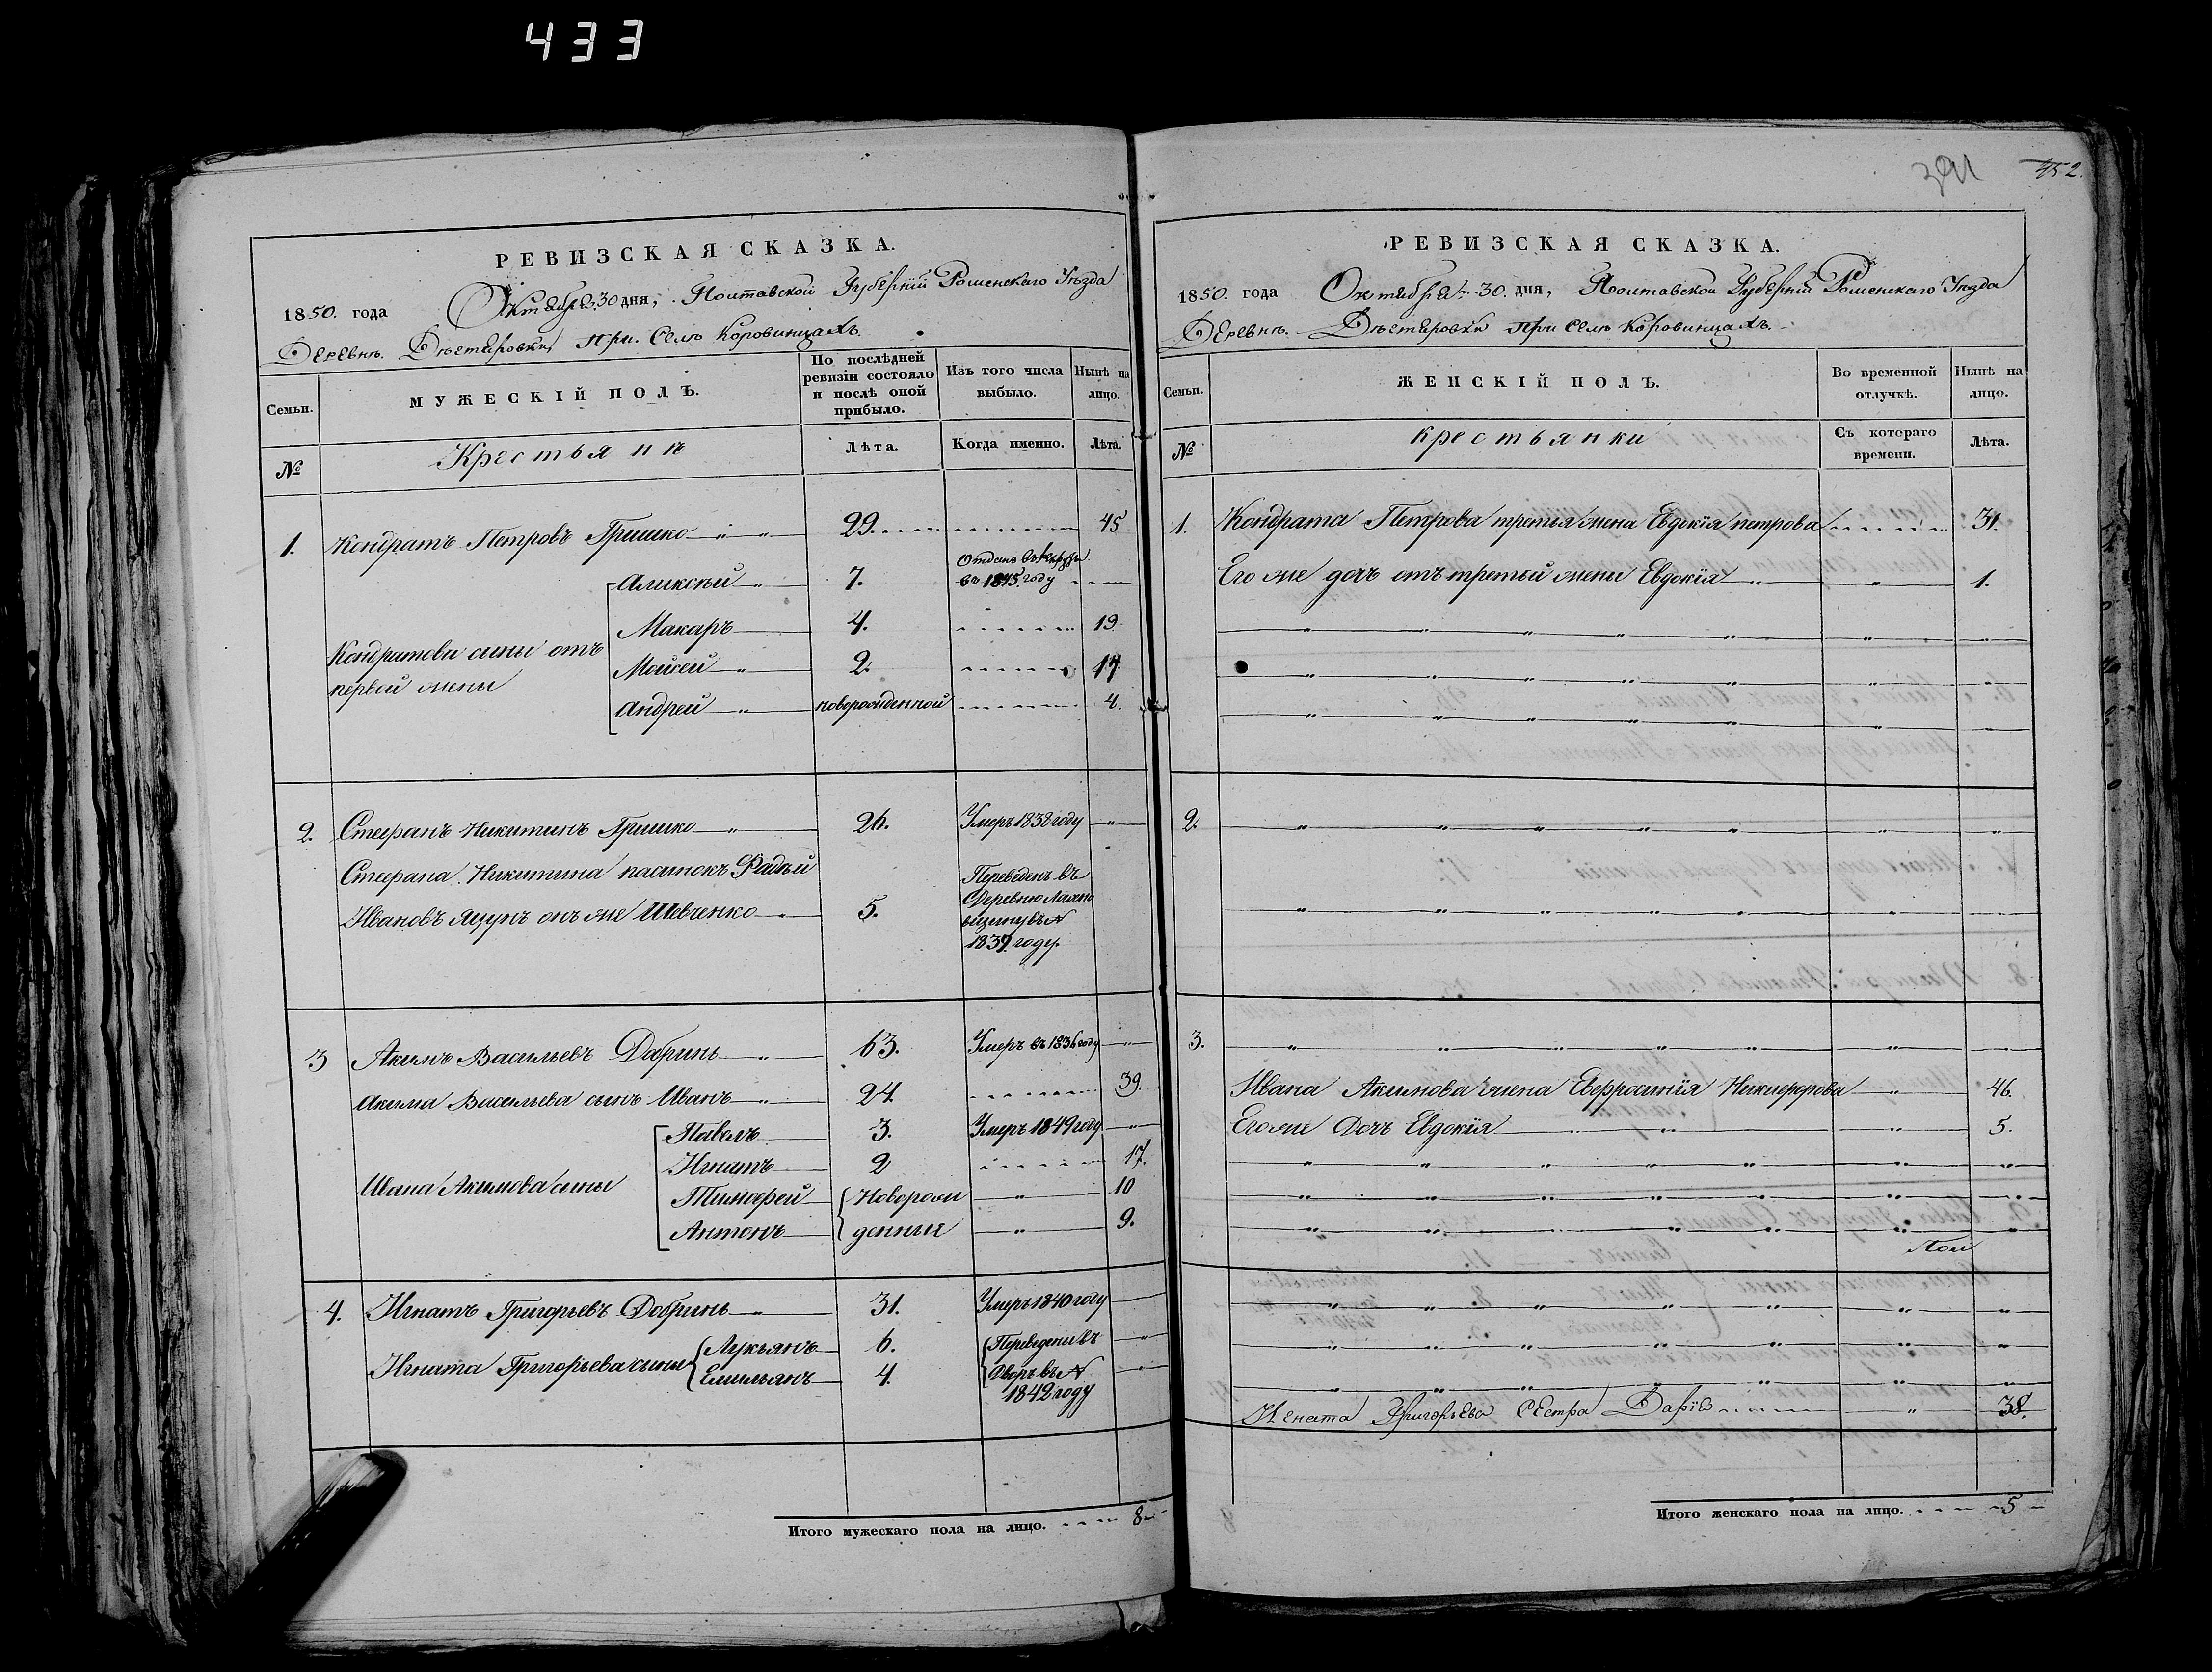 433
РЕВИЗСКАЯ СКАЗКА.
1850. года Октября 30 дня, Полтавской Губерніи Роменскаго Уѣзда
Деревнѣ при Селѣ Коровинцахъ
Семьи.
МУЖЕСКІЙ ПОЛЪ.
По послѣдней ревизіи состояло и послѣ оной прибыло.
Изъ того числа выбыло.
Нынѣ на лицо.
№
Крестьяне
Лѣта.
Когда именно.
Лѣта.
1. Кондратъ Петровъ Гришко 29. 45
Аликсѣй 7. Отданъ въ рекруты въ 1845 году
Макаръ 4. 19
Кондратови сины отъ
Мойсей 2. 17
первой жены
Андрей новорожденной 4.
2. Стефанъ Никитинъ Гришко 26. Умеръ 1838 году
Стефана Никитина пасинокъ Фадѣй
Ивановъ онъ же Шевченко 5.
Переведенъ въ
Деревню
1839 году.
3 Акимъ Васильевъ Добринь 63. Умеръ въ 1836 году
Акима Васильева сынъ Иванъ 24. 39.
Павелъ 3. Умеръ 1849 году
Игнатъ 2 17.
Ивана Акимова сины
Тимофей Новорож 10
Антонъ денные 9.
4. Игнатъ Григорьевъ Добринь 31. Умеръ 1840 году
Лукьянъ 6. Переведены въ
Игната Григорьева сыны
Емильянъ 4. Дворъ въ
1842 году
Итого мужескаго пола на лицо. 8
452.
391
РЕВИЗСКАЯ СКАЗКА.
1850. года Октября 30. дня, Полтавской Губерніи Роменскаго Уѣзда
Деревнѣ при Селѣ Коровинцахъ.
Семьи.
ЖЕНСКІЙ ПОЛЪ.
Во временной отлучкѣ.
Нынѣ на лицо.
№
Крестьянки
Съ котораго времени.
Лѣта.
1. Кондрата Петрова третья жена Евдокія петрова 31.
Его же дочъ отъ третьей жены Евдокія 1.
2.
3.
Ивана Акимова жена Евфросинія Никифорова 46.
Его же Дочъ Евдокія 5.
Игната Григорьева сестра Дарія 38.
Итого женскаго пола на лицо. 5